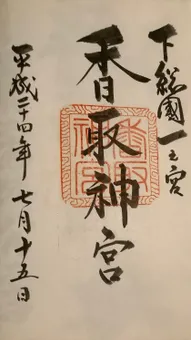 下總國一之宮
香取神宮
平成二十四年七月十五日